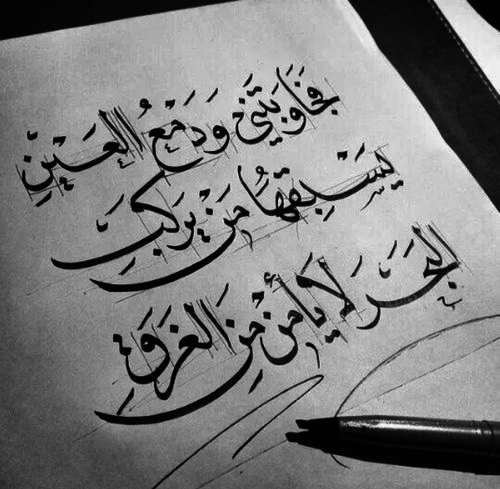 فَجَاوَبَتْنِي وَدَمْعُ الْعَيْنِ
يَسْبِقُهَا مَنْ يَرْكَبِ
الْبَحَرَ لَا يَأْمَنْ مِنَ الْغَرَقِ